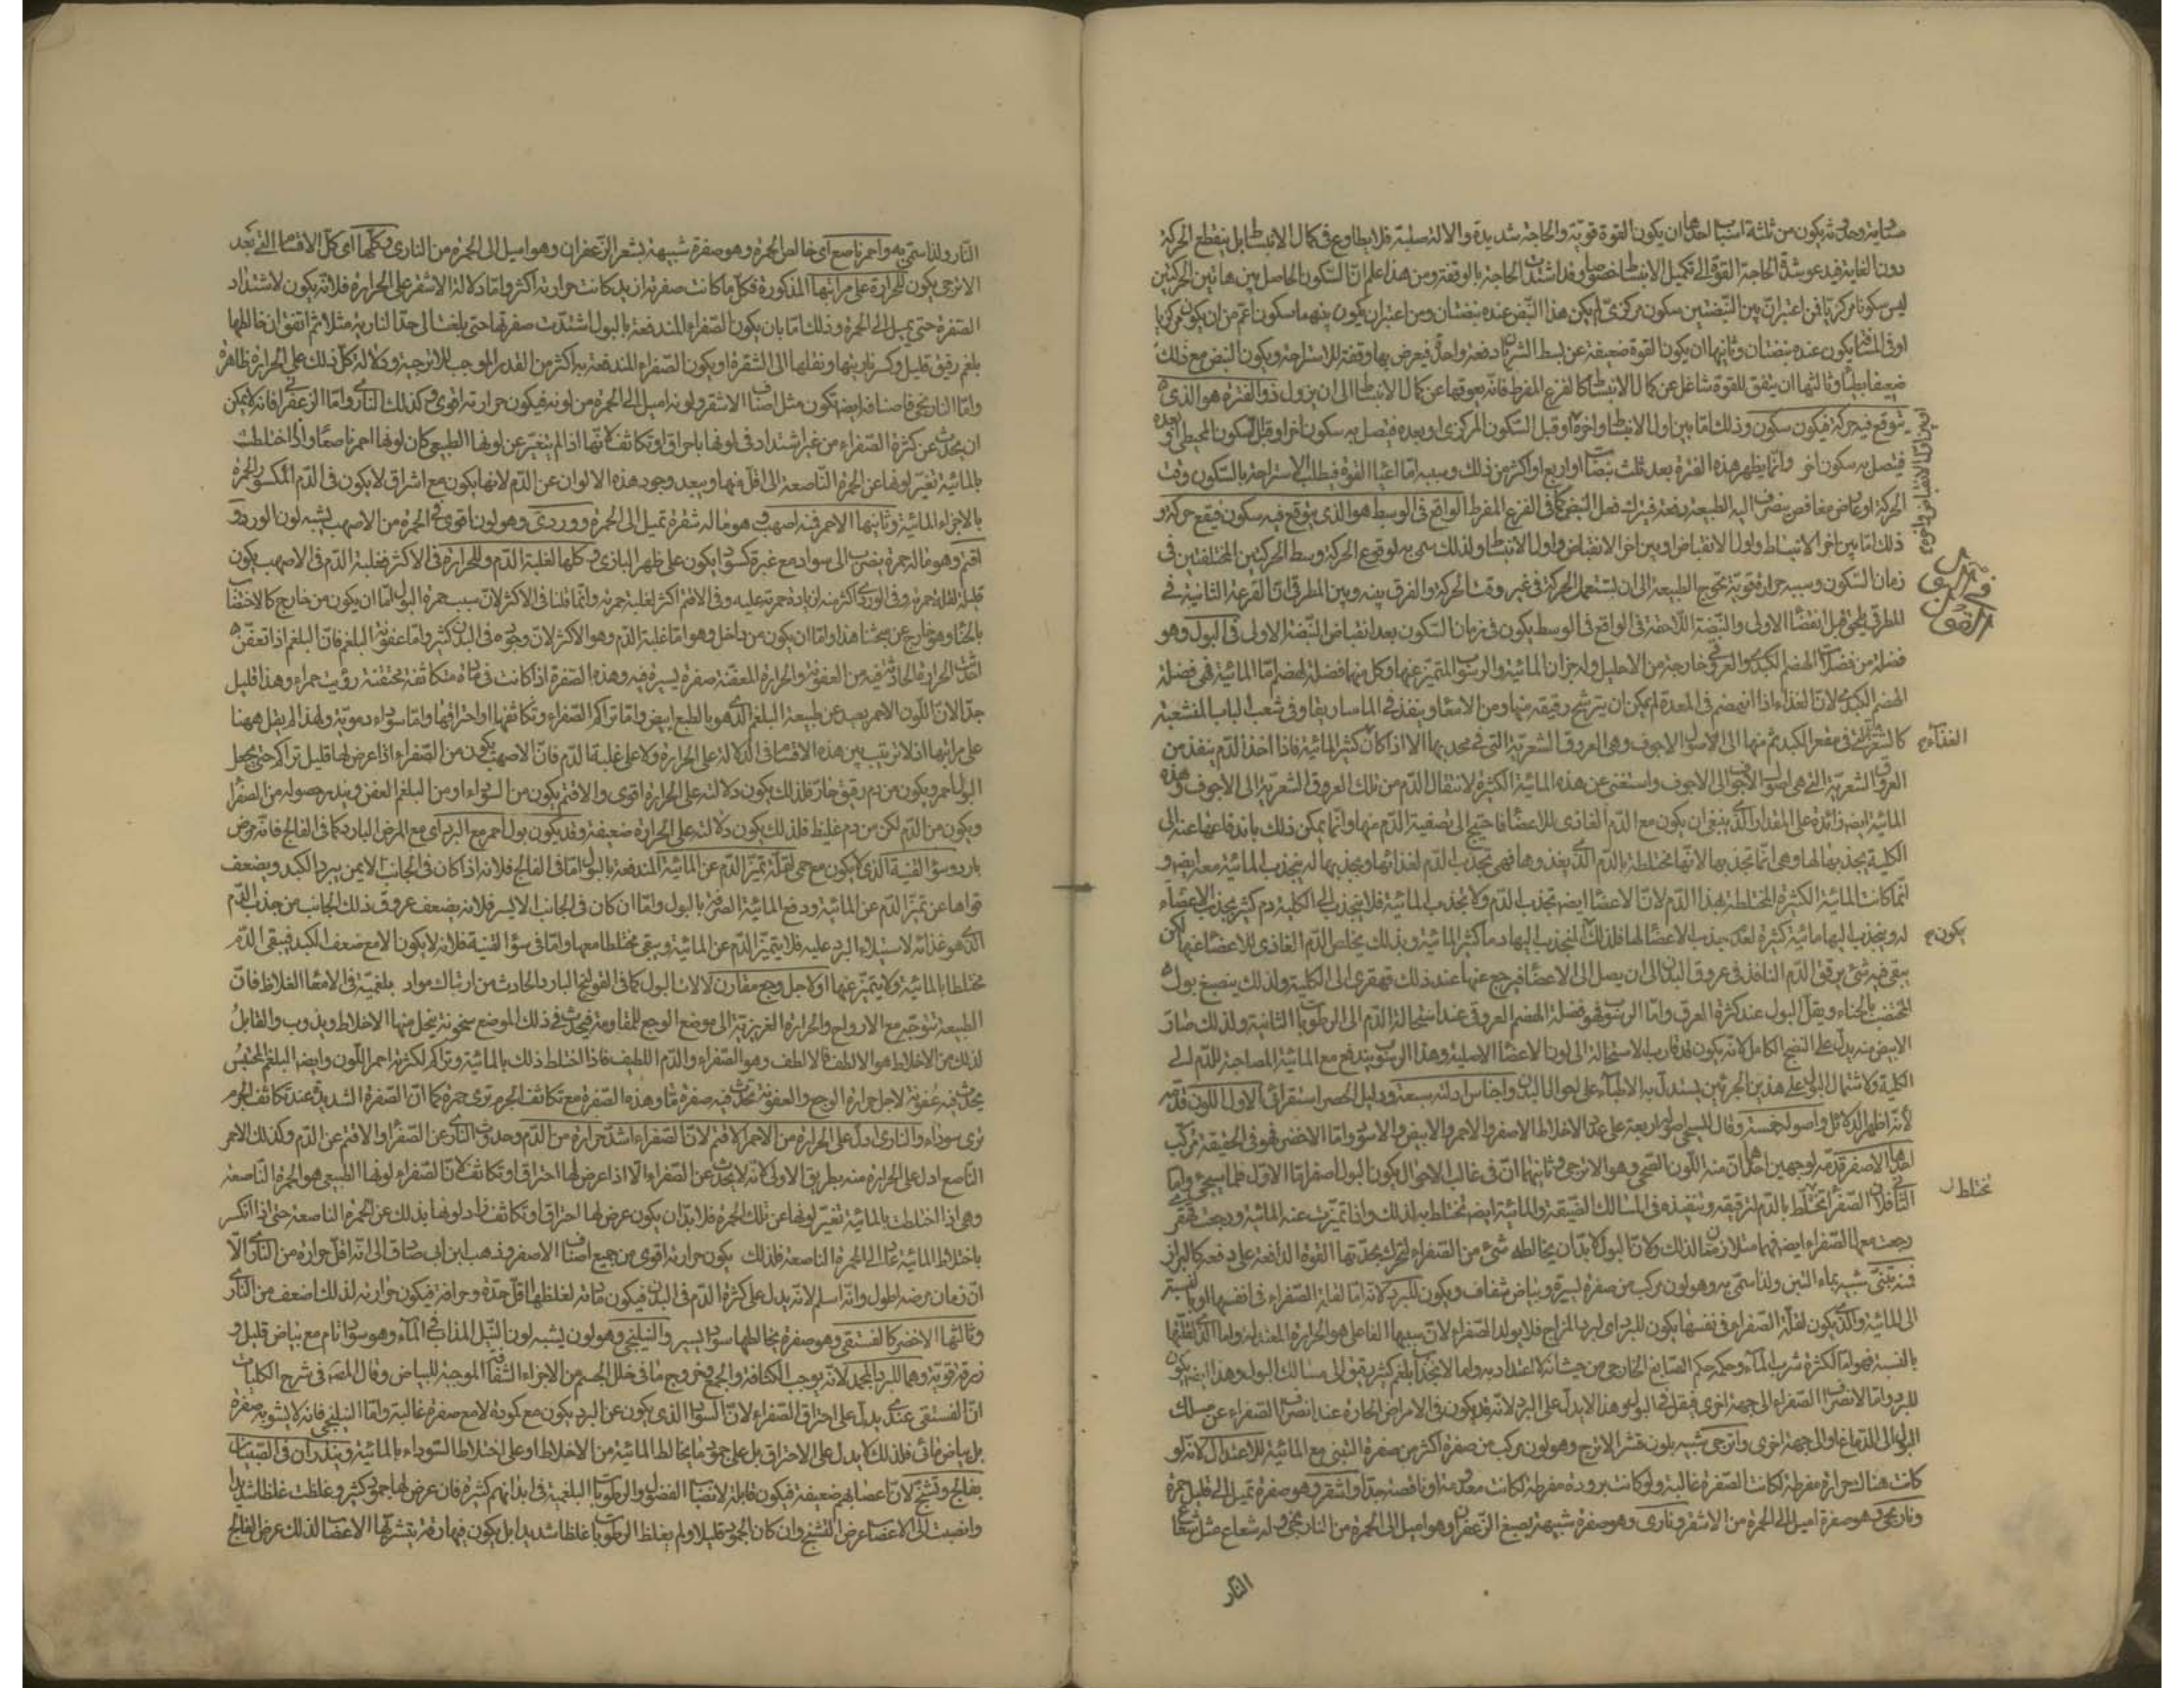 متشابه وحدوثه يكون من ثلثة اسباب احدها ان يكون القوة قوية والحاجة شديدة والالة صلبة فلا يطاوع فى كمال الانبساط بل ينقطع الحركة
دون الغاية فيدعو شدة الحاجة القوة الى تكميل الانبساط خصوصا وقد اشتدت الحاجة بالوقفة ومن هذا علم ان السكون الحاصل بين هاتين الحركتين
ليس سكونا مركزيا فمن اعتبر ان بين النبضتين سكون مركزى لم يكن هذا النبض عنده نبضتان ومن اعتبر ان يكون بينهما سكون اعم من ان يكون مركزيا
يكون عنده نبضتان وثانيها ان يكون القوة ضعيفة عن بسط الشريان دفعة واحدة فيعرض لها وقفة للاستراحة ويكون النبض مع ذلك
ضعيفا بطيئا وثالثها ان يتفق للقوة شاغل عن كمال الانبساط كالفزع المفرط فانه يعوقها عن كمال الانبساط الى ان يزول ذو الفترة هو الذى
يتوقع فيه حركة فيكون سكون وذلك اما بين اول الانبساط واخره او قبل السكون المركزى او بعده فيتصل به سكون اخر او قبل السكون المحيطى او بعده
فيتصل به سكون اخر وانما يظهر هذه الفترة بعد ثلث نبضات او اربع او اكثر من ذلك وسببه اما اعياء القوة فيطلب الاستراحة بالسكون وقت
الحركة او عارض مغافص ينصرف اليه الطبيعة دفعة فيترك فعل النبض كما فى الفزع المفرط الواقع فى الوسط هو الذى يتوقع فيه سكون فيقع حركة و
ذلك اما بين اخر الانبساط واول الانقباض او بين اخر الانقباض واول الانبساط ولذلك سمى به لوقوع الحركة وسط الحركتين المختلفتين فى
زمان السكون وسببه حرارة قوية تحوج الطبيعة الى ان يستعمل الحركة فى غير وقت الحركة والفرق بينه وبين المطرقى ان القرعة الثانية فى
المطرقى يلحق قبل انقضاء الاولى والنبضة اللاحقة فى الواقع فى الوسط يكون فى زمان السكون بعد انقباض النبضة الاولى فى البول وهو
فضلة من فضلات الهضم الكبدى والعرقى خارجة من الاحليل وله جزان المائية والرسوب المتميز عنها وكل منها فضلة لهضم اما المائية فهى فضلة
الهضم الكبدى لان الغذاء اذا انهضم فى المعدة لم يمكن ان يترشح رقيقه منها ومن الامعاء وينفذ فى الماساريقا وفى شعب الباب المنشعبة
فى مقعر الكبد ثم منها الى الاجوف وهى العروق الشعرية التى فى محدبها الا اذا كان كثير المائية فاذا اخذ الدم ينفذ من
العروق الشعرية التى هى اصول الاجوف الى الاجوف واستغنى عن هذه المائية الكثيرة لانتقال الدم من تلك العروق الشعرية الى الاجوف وهذه
المائية ايضه زائدة على المقدار الذى ينبغى ان يكون مع الدم الغاذى للاعضاء فاحتيج الى تصفية الدم منها وانما يمكن ذلك باندفاعها عنه الى
الكلية بجذبها لها وهى انما تجذبها لانها مختلطة بالدم الذى يغذوها فهى تجذب الدم لغذائها وبجذبها له ينجذب المائية معه ايضه و
انما كانت المائية الكثيرة المختلطة بهذا الدم لان الاعضاء ايضه تجذب الدم ولا تجذب المائية فلا ينجذب الى الكلية دم كثير بجذب الاعضاء
له وينجذب اليها مائية كثيرة لعدم جذب الاعضاء لها فلذلك ينجذب اليها دم ما كثير المائية وبذلك يخلص الدم الغاذى للاعضاء عنها لكن
يبقى فيه شئ يرقق الدم النافذ فى عروق البدن الى ان يصل الى الاعضاء فيرجع عنها عند ذلك قهقرى الى الكلية ولذلك ينصبغ بول
المختضب بالحناء ويقل البول عند كثرة العرق واما الرسوب فهو فضلة الهضم العروقى عند استحالة الدم الى الرطوبات الثانية ولذلك صار
الابيض منه يدل على النضج الكامل لانه يكون قد قارب الاستحالة الى لون الاعضاء الاصلية وهذا الرسوب يندفع مع المائية المصاحبة للدم الى
الكلية ولاشتمال البول على هذين الجزئين يستدل به الاطباء على احوال البدن واجناس ادلته سبعة ودليل الحصر استقرائى الاول اللون قدمه
لانه اظهر الدلائل واصوله خمسة وقال المسيحى اصوله اربعة على عدد الاخلاط الاصفر والاحمر والابيض والاسود واما الاخضر فهو فى الحقيقة مركب
احدها الاصفر قدمه لوجهين احدهما ان منه اللون الصحى وهو الاترجى وثانيهما ان فى غالب الاحوال يكون البول اصفر اما الاول فلما سيجئ واما
الثانى فلان الصفراء تختلط بالدم لترقيقه وتنفيذه فى المسالك الضيقة والمائية ايضه تختلط به لذلك واذا تميزت عنه المائية ورجعت قهقرى
رجعت معها الصفراء ايضه ولان البول لابد ان يخالطه شئ من الصفراء لتحرك بحدتها القوة الدافعة على دفعه كالبراز
فمنه تبنى شبيه بماء التبن ولذا سمى به وهو لون مركب من صفرة يسيرة وبياض شفاف ويكون للبرد لانه اما لقلة الصفراء فى نفسها او بالنسبة
الى المائية والذى يكون لقلة الصفراء فى نفسها يكون للبرد اى لبرد المزاج فلا يولد الصفراء لان سببها الفاعلى هو الحرارة المعتدلة واما الذى لقلتها
بالنسبة فهو اما لكثرة شرب الماء وحكمه حكم الصابغ الخارجى من حيث انه لا اعتداد به واما لانجذاب بلغم كثير رقيق الى مسالك البول وهذا ايضه يكون
للبرد واما لانصراف الصفراء الى جهة اخرى فيقل فى البول وهذا لا يدل على البرد لانه قد يكون فى الامراض الحارة عند انصراف الصفراء عن مسلك
البول الى الدماغ او الى جهة اخرى واترجى شبيه بلون قشر الاترج وهو لون مركب من صفرة اكثر من صفرة التبنى مع المائية للاعتدال لانه لو
كانت هناك حرارة مفرطة لكانت الصفرة غالبة ولو كانت برودة مفرطة لكانت معدومة او ناقصة جدا واشقر وهو صفرة تميل الى قليل حمرة
ونارنجى وهو صفرة اميل الى الحمرة من الاشقر ونارى وهو صفرة شبيهة بصبغ الزعفران وهو اميل الى الحمرة من النارنجى وله شعاع مثل شعاع
النار
فى البول
القول
الغذاء
يكون
تختلط
النار ولذا سمى به واحمر ناصع اى خالص الحمرة وهو صفرة شبيهة بشعر الزعفران وهو اميل الى الحمرة من النارى وكلها اى كل الاقسام التى بعد
الاترجى يكون للحرارة على مراتبها المذكورة فكل ما كانت صفرته ازيد كانت حرارته اكثر واما دلالة الاشقر على الحرارة فلانه يكون لاشتداد
الصفرة حتى يميل الى الحمرة وذلك اما بان يكون الصفراء المندفعة بالبول اشتدت صفرتها حتى بلغت الى حد النارية مثلا ثم اتفق ان خالطها
بلغم رقيق قليل وكسر ناريتها ونقلها الى الشقرة او يكون الصفراء المندفعة به اكثر من القدر الموجب للاترجية ودلالة كل ذلك على الحرارة ظاهرة
واما النارنجى فاصنافه ايضه تكون مثل اصناف الاشقر ولونه اميل الى الحمرة من لونه فيكون حرارته اقوى وكذلك النارى واما الزعفرانى فانه لا يمكن
ان يحدث عن كثرة الصفراء من غير اشتداد فى لونها باحراق او تكاثف لانها اذا لم يتغير عن لونها الطبيعى كان لونها احمر ناصعا واذا اختلطت
بالمائية تغير لونها عن الحمرة الناصعة الى اقل منها ويبعد وجود هذه الالوان عن الدم لانها يكون مع اشراق لا يكون فى الدم المكسور الحمرة
بالاجزاء المائية وثانيها الاحمر فمنه اصهب وهو ما له شقرة تميل الى الحمرة ووردى وهو لون اقوى فى الحمرة من الاصهب يشبه لون الورد و
اقتم وهو ما له حمرة يضرب الى سواد مع غبرة كسواد يكون على ظهر البازى وكلها لغلبة الدم وللحرارة فى الاكثر فغلبة الدم فى الاصهب يكون
قليلة لقلة حمرته وفى الوردى اكثر منه لزيادة حمرته عليه وفى الاقتم اكثر لغلبة حمرته وانما قلنا فى الاكثر لان سبب حمرة البول اما ان يكون من خارج كالاختضاب
بالحناء وهو خارج عن مبحثنا هذا واما ان يكون من داخل وهو اما غلبة الدم وهو الاكثر لان وجوده فى البدن كثير واما عفونة البلغم فان البلغم اذا تعفن
الحرارة الحادثة فيه من العفونة والحرارة المعفنة صفرة يسيرة فيه وهذه الصفرة اذا كانت فى مادة متكاثفة مختنقة رؤيت حمراء وهذا قليل
جدا لان اللون الاحمر بعيد عن طبيعة البلغم الذى هو بالطبع ابيض واما تراكم الصفراء وتكاثفها او احتراقها واما سوداء دموية ولهذا لم يقل ههنا
على مراتبها اذ لا ترتيب بين هذه الاقسام فى الدلالة على الحرارة ولا على غلبة الدم فان الاصهب يكون من الصفراء اذا عرض لها قليل تراكم حتى يجعل
البول احمر ويكون من دم رقيق حار فلذلك يكون دلالته على الحرارة اقوى والاقتم يكون من السوداء او من البلغم العفن ويندر حصوله من الصفراء
ويكون من الدم لكن من دم غليظ فلذلك يكون دلالته على الحرارة ضعيفة وقد يكون بول احمر مع البرد اى مع المرض البارد كما فى الفالج فانه مرض
بارد وسوء القنية الذى لا يكون مع حمى لقلة تميز الدم عن المائية المندفعة بالبول اما فى الفالج فلانه اذا كان فى الجانب الايمن يبرد الكبد ويضعف
قواها عن تميز الدم عن المائية ودفع المائية الصرفة بالبول واما ان كان فى الجانب الايسر فلانه يضعف عروق ذلك الجانب من جذب الدم
الذى هو غذائه لاستيلاء البرد عليه فلا يتميز الدم عن المائية ويبقى مختلطا معها واما فى سوء القنية فلانه لا يكون الا مع ضعف الكبد فيبقى الدم
مختلطا بالمائية ولا يتميز عنها او لاجل وجع مقارن لالات البول كما فى القولنج البارد الحادث من ارتباك مواد بلغمية فى الامعاء الغلاظ فان
الطبيعة تتوجه مع الارواح والحرارة الغريزية الى موضع الوجع للمقاومة فيحدث فى ذلك الموضع سخونة يتحلل منها الاخلاط ويذوب والقابل
لذلك من الاخلاط هو الالطف فالالطف وهو الصفراء والدم اللطيف فاذا اختلط ذلك بالمائية وتراكم لكثرته احمر اللون وايضه البلغم المحتبس
يحدث فيه عفونة لاجل حرارة الوجع والعفونة تحدث فيه صفرة ما وهذه الصفرة مع تكاثف الجرم ترى حمرة كما ان الصفرة الشديدة عند تكاثف الجرم
ترى سوداء والنارى ادل على الحرارة من الاحمر الاقتم لان الصفراء اشد حرارة من الدم وحدوث النارى عن الصفراء والاقتم عن الدم وكذلك الاحمر
الناصع ادل على الحرارة منه بطريق الاولى لانه لا يحدث عن الصفراء الا اذا عرض لها احتراق او تكاثف لان الصفراء لونها الطبيعى هو الحمرة الناصعة
وهى اذا اختلطت بالمائية تغير لونها عن تلك الحمرة فلا بد ان يكون عرض لها احتراق او تكاثف زاد لونها بذلك عن الحمرة الناصعة حتى اذا انكسر
باختلاط المائية عاد الى الحمرة الناصعة فلذلك يكون حرارته اقوى من جميع اصناف الاصفر وذهب ابن ابى صادق الى انه اقل حرارة من النارى الا
ان زمان مرضه اطول وانه اسلم لانه يدل على كثرة الدم فى البدن فيكون مادته لغلظها اقل حدة وحرافة فيكون حرارته لذلك اضعف من النارى
وثالثها الاخضر كالفستقى وهو صفرة يخالطها سواد يسير والنيلنجى وهو لون يشبه لون النيل المذاب فى الماء وهو سواد تام مع بياض قليل و
زرقة قوية وهما للبرد المجمد لانه يوجب الكثافة والجمع وخروج ما فى خلل الجسم من الاجزاء الشفافة الموجبة للبياض وقال المصه فى شرح الكليات
ان الفستقى عندى يدل على احتراق الصفراء لان السواد الذى يكون عن البرد يكون مع كمودة لا مع صفرة غالبة واما النيلنجى فانه لا يشوبه صفرة
بل بياض مائى فلذلك لا يدل على الاحتراق بل على جمود ما يخالط المائية من الاخلاط او على اختلاط السوداء بالمائية وينذران فى الصبيان
بفالج وتشنج لان اعصابهم ضعيفة فيكون قابلة لانصباب الفضول والرطوبات البلغمية فى ابدانهم كثيرة فان عرض لها جمود كثير وغلظت غلظا شديدا
وانصبت الى الاعصاب عرض التشنج وان كان الجمود قليلا ولم يغلظ الرطوبات غلظا شديدا بل يكون فيها رقة يتشربها الاعصاب لذلك عرض الفالج